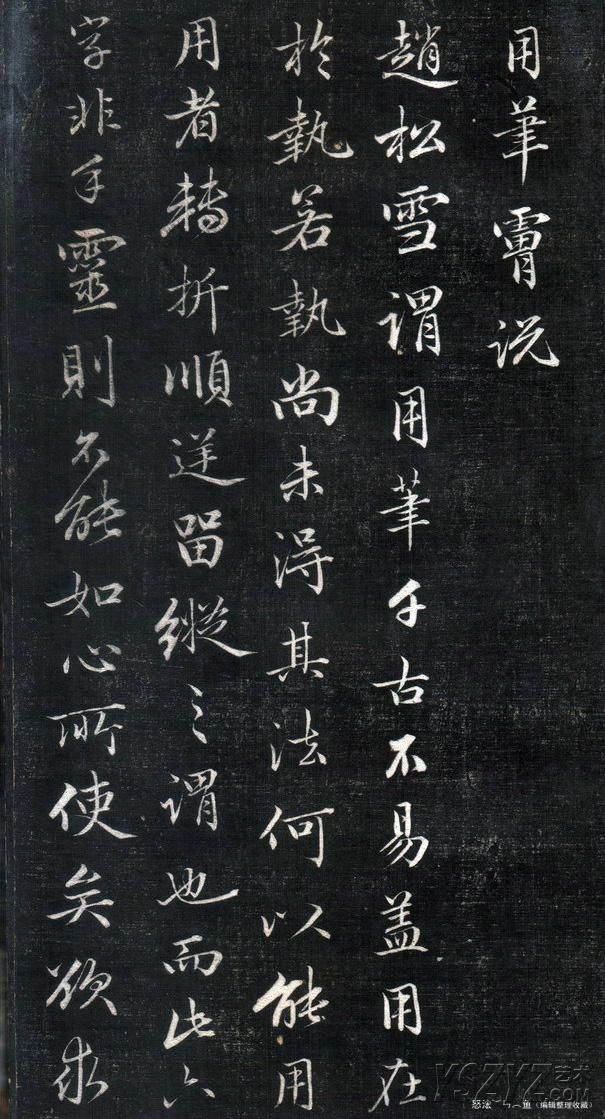 用筆说
趙松雪谓用筆千古不易盖用在
於執若執尚未得其法何以能用
用者轉折順逆留縱之谓也而此六
字非手靈則不能如心所使矣欲求
YSZYZ艺术
（编辑整理收藏）